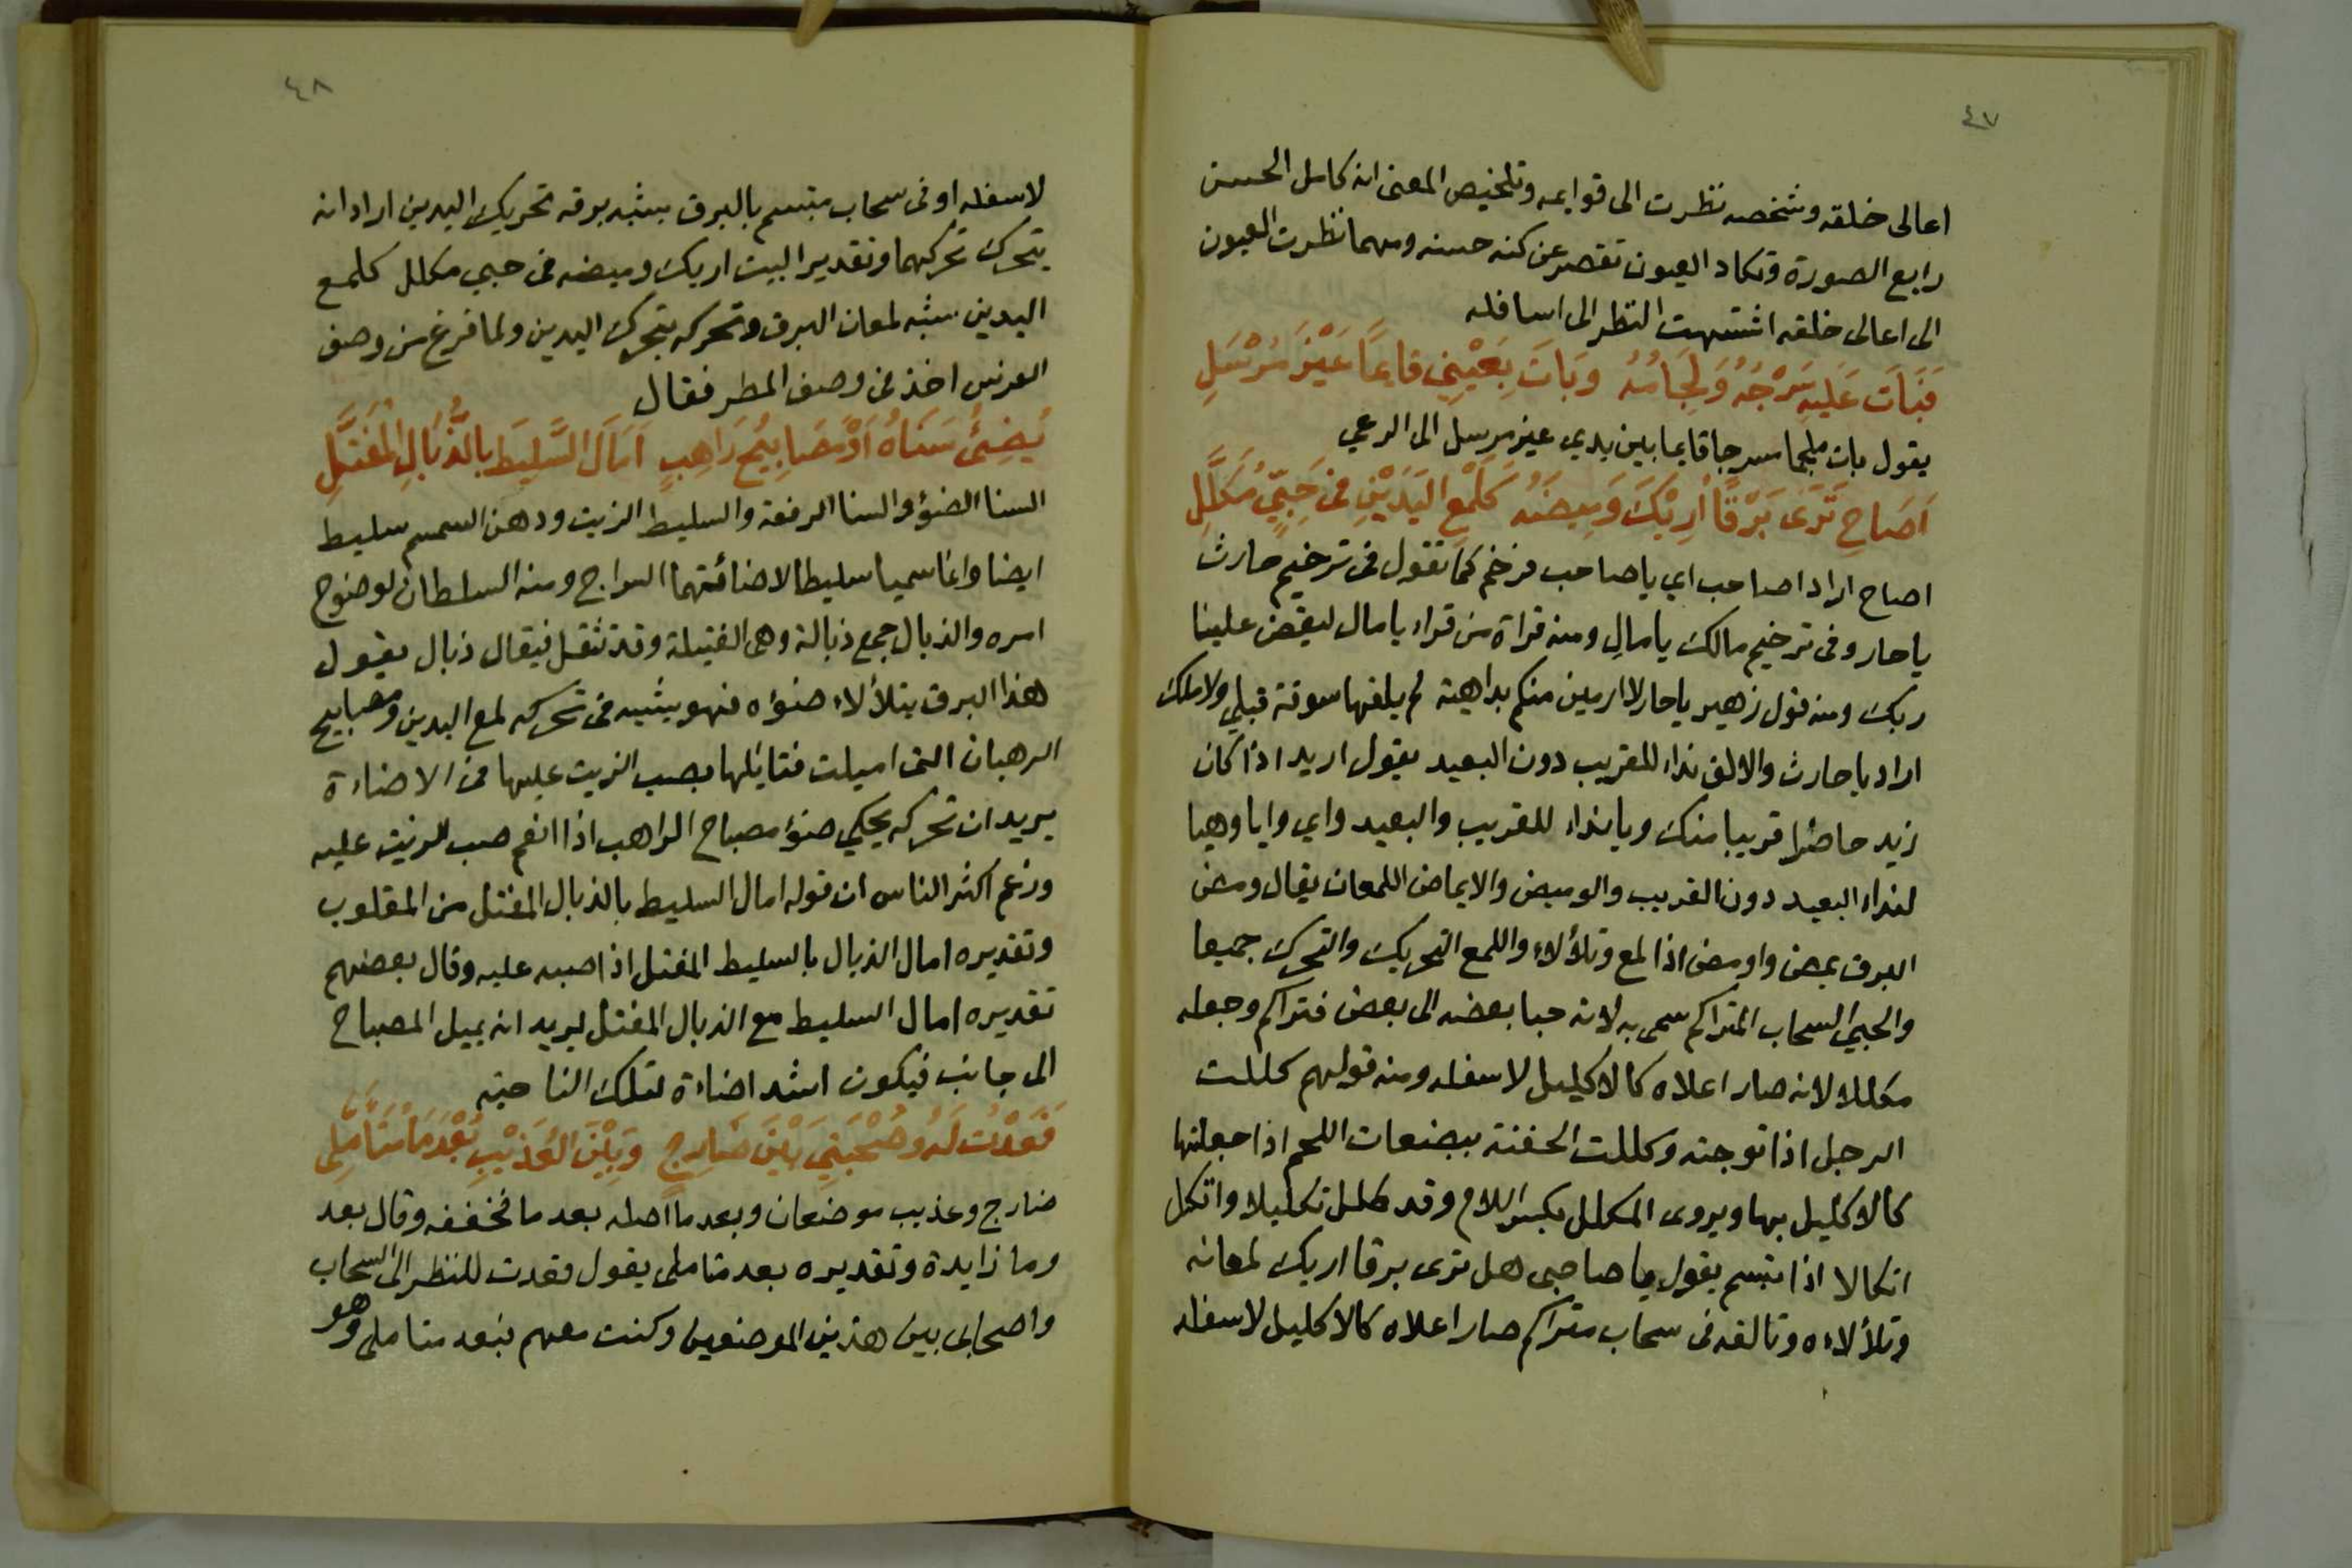 ٤٧
اعالى خلقه وشخصه نظرت الى قوايمه وتلخيص المعنى انه كامل الحسن
رايع الصورة وتكاد العيون تقصر عن كنه حسنه ومهما نظرت العيون
الى اعالى خلقه اشتهت النظر الى اسافله
فَبَاتَ عَلَيهِ سَرْجُهُ وَلِجَامُهُ وَبَاتَ بِعَيْنِي قايمًا غَيْرَ مُرْسَلِ
يقول بات ملجما مسرجا قايما بين يدي غير مرسل الى الرعي
اَصَاحِ تَرَى بَرْقًا اُرِيْكَ وَمِيضَهُ كَلَمْعِ اليَدَيْنِ فى حَبِيٍّ مُكَلَّلِ
اصاح اراد اصاحب اي ياصاحب فرخم كما تقول فى ترخيم حارث
ياحار وفى ترخيم مالك يا مالِ ومنه قراة من قراء يا مال ليقض علينا
ربك ومنه قول زهير ياحار لا ارمين منكم بداهية لم يلقها سوقة قبلي ولا ملك
اراد ياحارث والالف نداء للقريب دون البعيد يقول ازيد اذا كان
زيد حاضرا قريبا منك ويا نداء للقريب والبعيد واي وايا وهيا
لنداء البعيد دون القريب والوميض والايماض اللمعان يقال ومض
البرق يمض واومض اذا لمع وتلألاء واللمع التحريك والتحرك جميعا
والحبي السحاب المتراكم سمى به لانه حبا بعضه الى بعض فتراكم وجعله
مكللا لانه صار اعلاه كالاكليل لاسفله ومنه قولهم كللت
الرجل اذا توجته وكللت الجفنة ببضعات اللحم اذا جعلتها
كالاكليل بها ويروى المكلل بكسر اللام وقد كلل تكليلا وانكل
انكالا اذا تبسم يقول يا صاحبى هل ترى برقا اريك لمعانه
وتلألاءه وتالقه فى سحاب متراكم صار اعلاه كالاكليل لاسفله
٤٨
لاسفله او فى سحاب متبسم بالبرق يشبه برقه تحريك اليدين اراد انه
يتحرك تحركهما وتقدير البيت اريك وميضه فى حبي مكلل كلمع
اليدين شبه لمعان البرق وتحركه بتحرك اليدين ولما فرغ من وصف
الفرس اخذ فى وصف المطر فقال
يُضِئُ سَنَاهُ اَوْ مَصَابِيْحُ رَاهِبٍ اَمَالَ السَّلِيْطَ بالذُّبَالِ الْمُفَتَّلِ
السنا الضوؤ والسنا الرفعة والسليط الزيت ودهن السمسم سليط
ايضا وانما سميا سليطا لاضائتهما السراج ومنه السلطان لوضوح
امره والذبال جمع ذبالة وهى الفتيلة وقد تثقل فيقال ذبال يقول
هذا البرق يتلألاء ضوؤه فهو يشبه فى تحركه لمع اليدين ومصابيح
الرهبان التى اميلت فتايلها بصب الزيت عليها فى الاضاءة
يريد ان تحركه يحكي ضوؤ مصباح الراهب اذا انعم صب الزيت عليه
وزعم اكثر الناس ان قوله امال السليط بالذبال المفتل من المقلوب
وتقديره امال الذبال بالسليط المفتل اذا صبه عليه وقال بعضهم
تقديره امال السليط مع الذبال المفتل يريد انه يميل المصباح
الى جانب فيكون اشد اضاءة لتلك الناحية
قَعَدْتُ لَهُ وَصُحْبَتِي بَيْنَ ضَارِجٍ وَبَيْنَ العُذَيْبِ بُعْدَ مَا مُتَأَمَّلِى
ضارج وعذيب موضعان وبعد ما اصله بعد ما فخففه وقال بعد
وما زايدة وتقديره بعد متاملى يقول قعدت للنظر الى السحاب
واصحابى بين هذين الموضعين وكنت معهم فبعد متاملى وهو